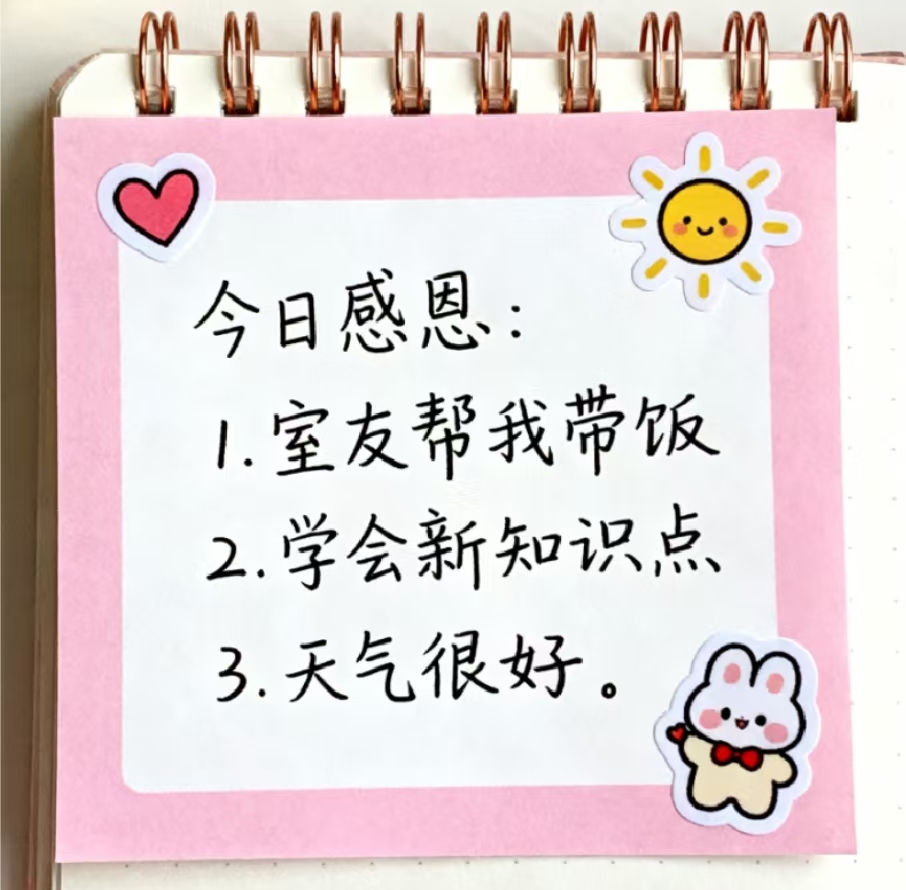 今日感恩：
1.室友帮我带饭
2.学会新知识点
3.天气很好。